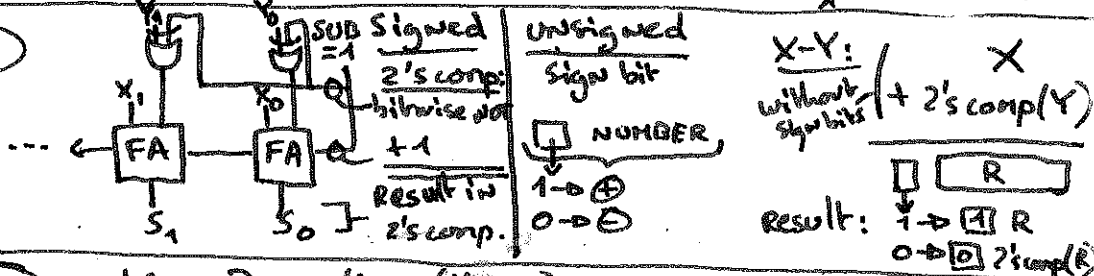 Y1 Y0
SUB
=1
X1 X0
... FA FA
S1 S0
Signed
2's comp:
bitwise not
+1
Result in
2's comp.
Unsigned
Sign bit
NUMBER
1→ +
0→ −
X-Y:
without
sign bits
X
+ 2's comp(Y)
R
Result: 1→ 1 R
0→ 0 2's comp(R)